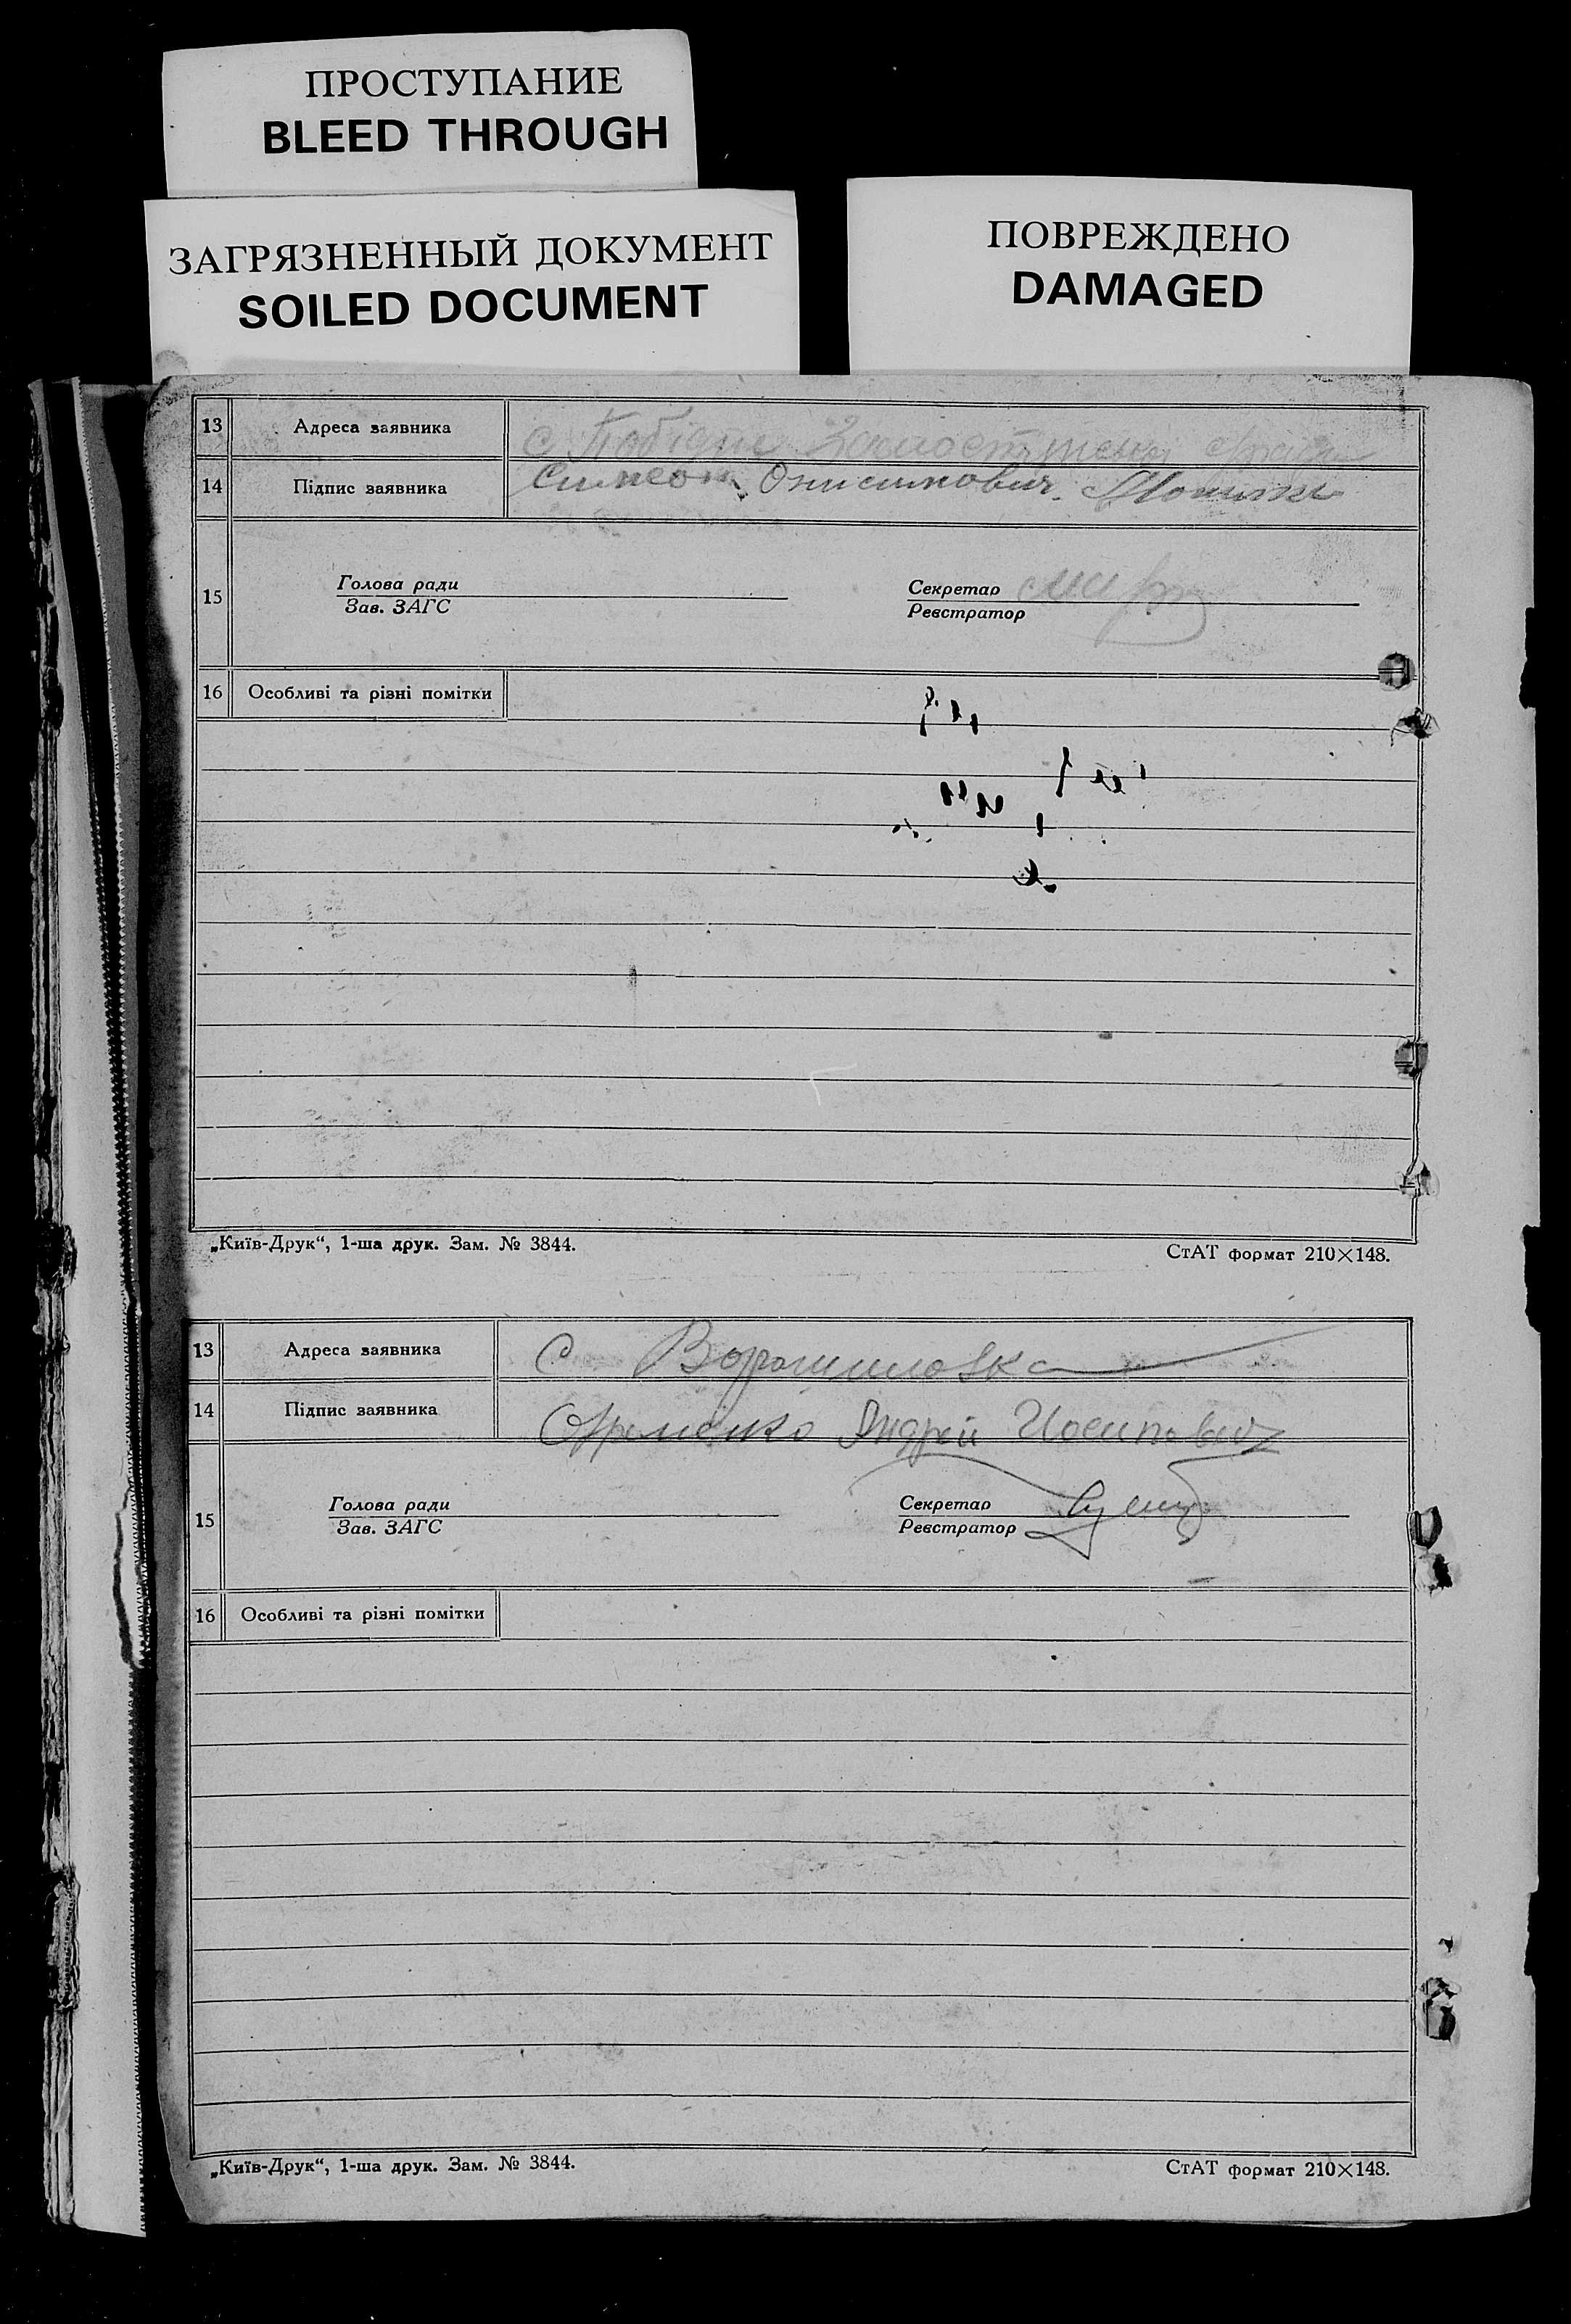 ПРОСТУПАНИЕ
BLEED THROUGH
ЗАГРЯЗНЕННЫЙ ДОКУМЕНТ
SOILED DOCUMENT
ПОВРЕЖДЕНО
DAMAGED
13 Адреса заявника с
14 Підпис заявника Симеон Онисимович
15 Голова ради
Зав. ЗАГС
Секретар
Реєстратор
16 Особливі та різні помітки
„Київ-Друк“, 1-ша друк. Зам. № 3844.
СтАТ формат 210×148.
13 Адреса заявника с Ворошиловка
14 Підпис заявника Охременко Андрей Иосипович
15 Голова ради
Зав. ЗАГС
Секретар
Реєстратор
16 Особливі та різні помітки
„Київ-Друк“, 1-ша друк. Зам. № 3844.
СтАТ формат 210×148.